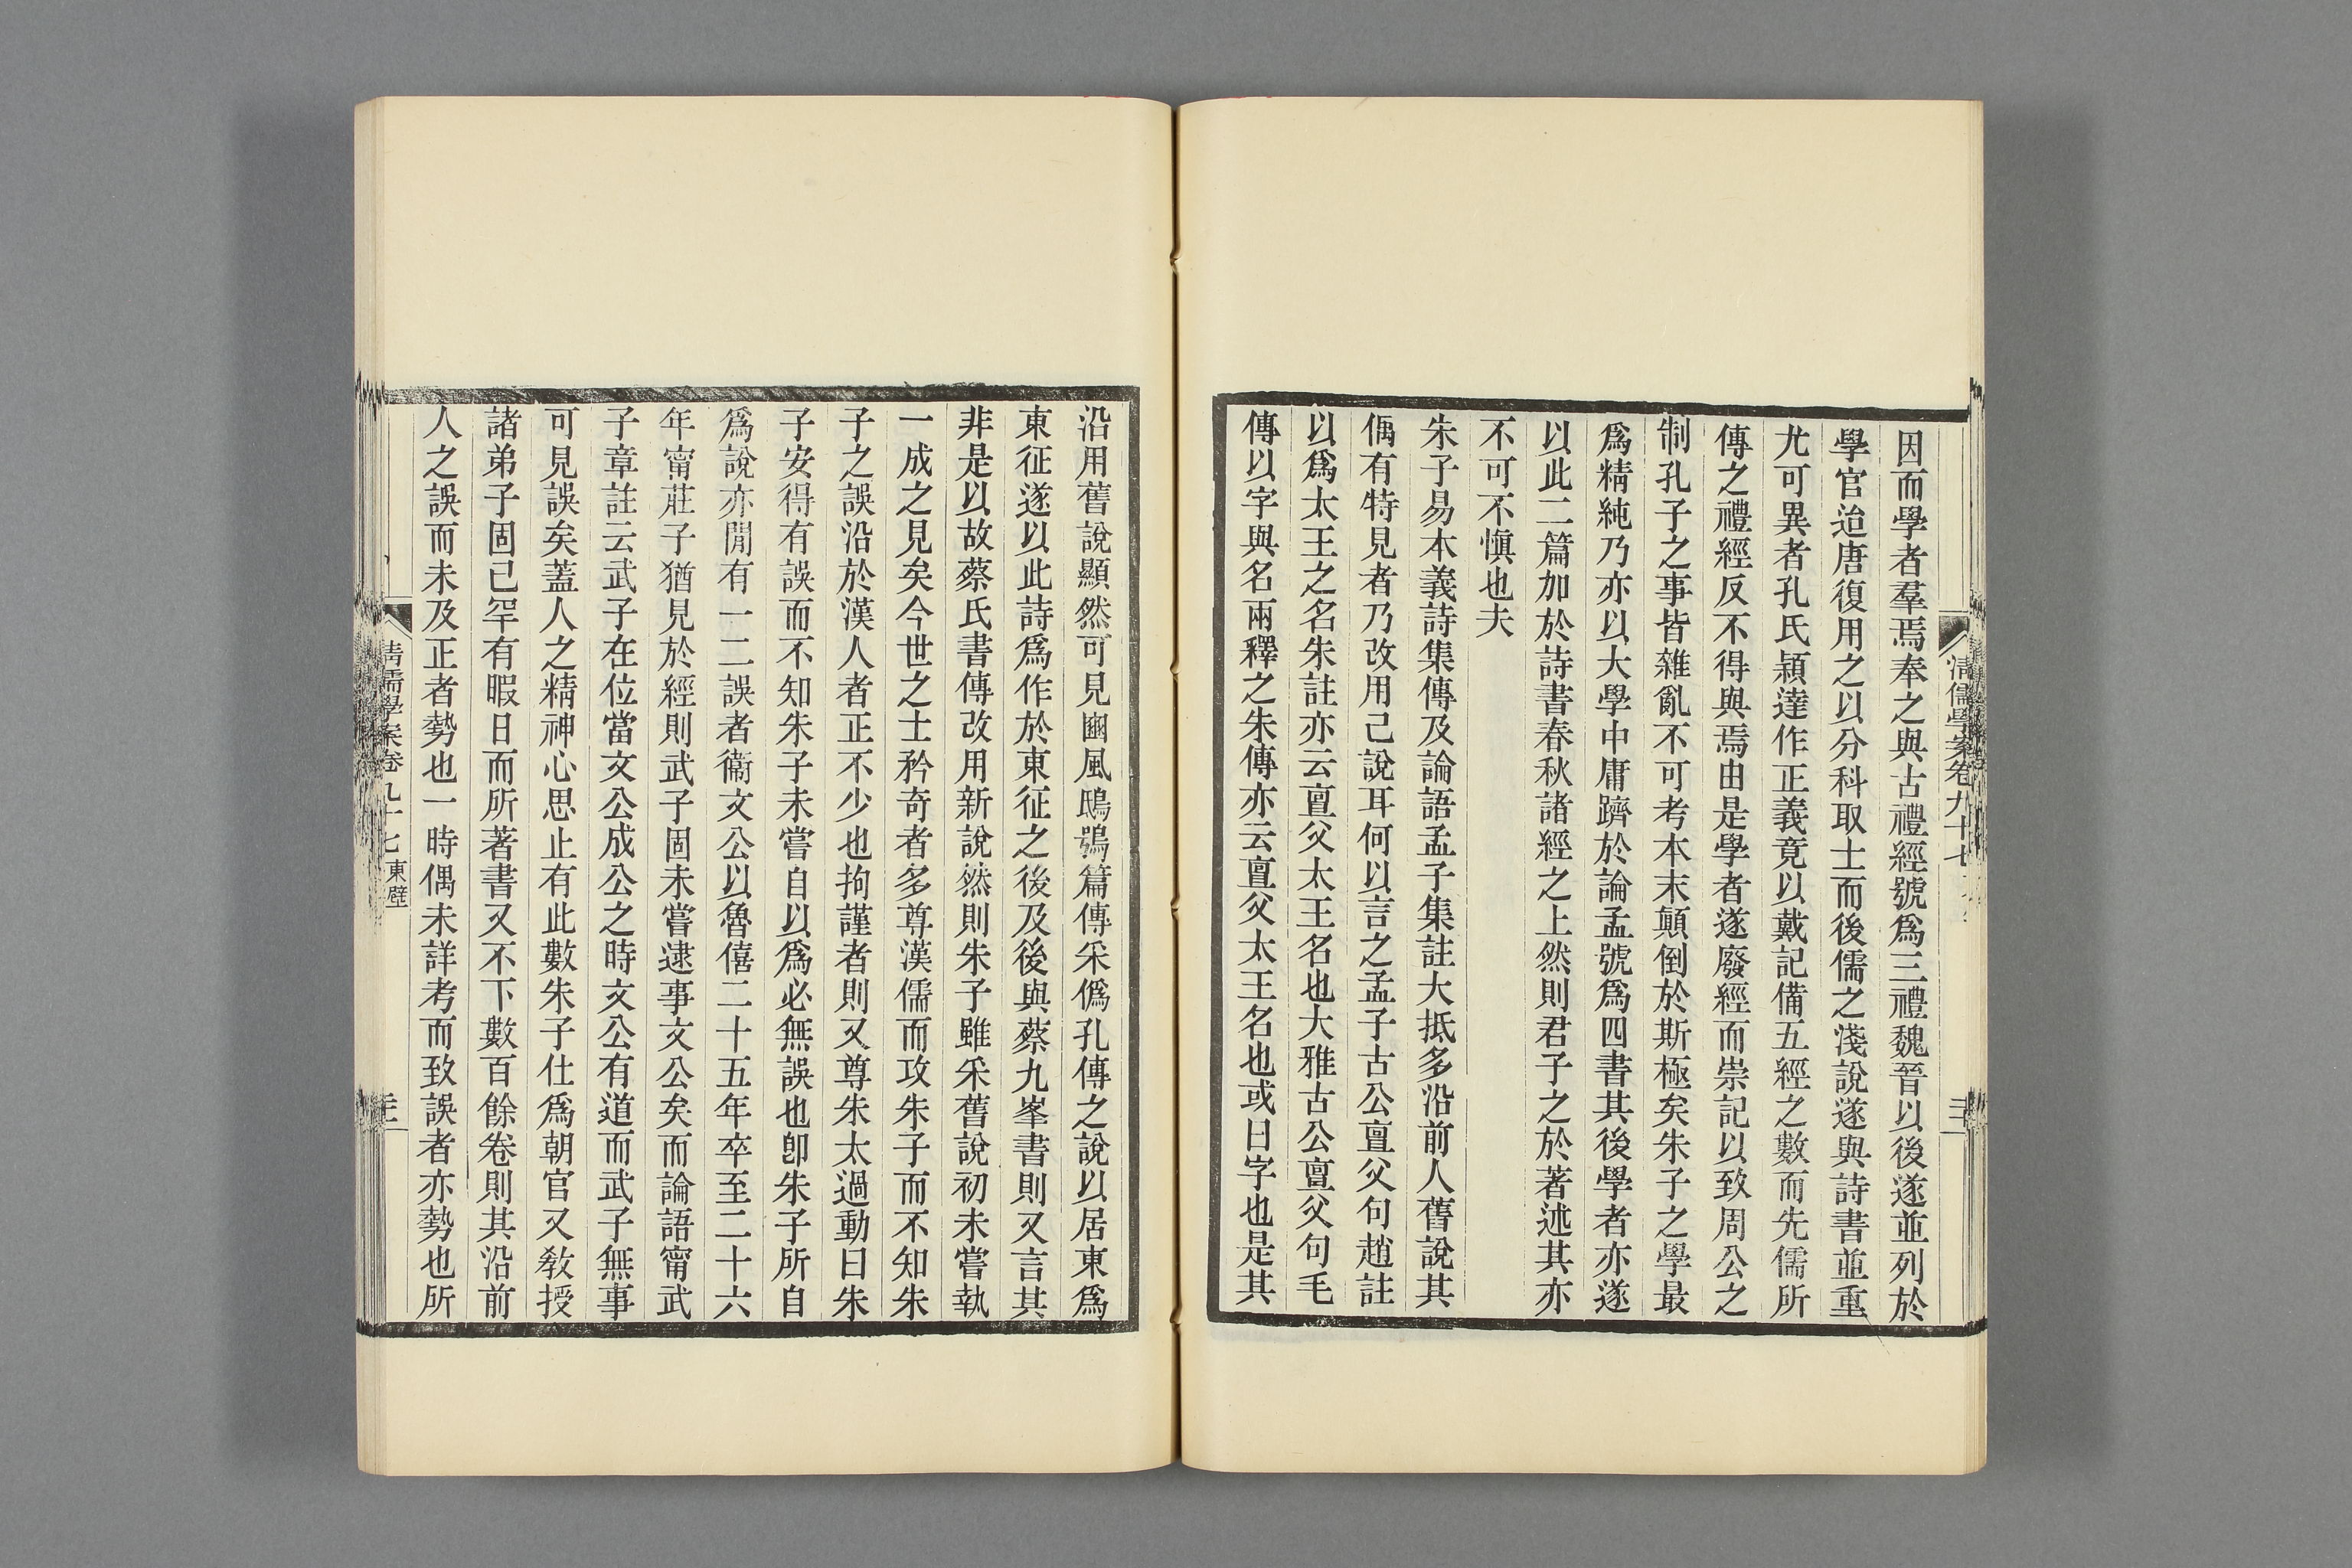 清儒學案卷九十七
因而學者羣焉奉之與古禮經號爲三禮魏晉以後遂並列於
學官迨唐復用之以分科取士而後儒之淺說遂與詩書並重
尤可異者孔氏穎達作正義竟以戴記備五經之數而先儒所
傳之禮經反不得與焉由是學者遂廢經而崇記以致周公之
制孔子之事皆雜亂不可考本末顛倒於斯極矣朱子之學最
爲精純乃亦以大學中庸躋於論孟號爲四書其後學者亦遂
以此二篇加於詩書春秋諸經之上然則君子之於著述其亦
不可不愼也夫
朱子易本義詩集傳及論語孟子集註大抵多沿前人舊說其
偶有特見者乃改用己說耳何以言之孟子古公亶父句趙註
以爲太王之名朱註亦云亶父太王名也大雅古公亶父句毛
傳以字與名兩釋之朱傳亦云亶父太王名也或曰字也是其
沿用舊說顯然可見豳風鴟鴞篇傳采僞孔傳之說以居東爲
東征遂以此詩爲作於東征之後及後與蔡九峯書則又言其
非是以故蔡氏書傳改用新說然則朱子雖采舊說初未嘗執
一成之見矣今世之士矜奇者多尊漢儒而攻朱子而不知朱
子之誤沿於漢人者正不少也拘謹者則又尊朱太過動曰朱
子安得有誤而不知朱子未嘗自以爲必無誤也卽朱子所自
爲說亦閒有一二誤者衞文公以魯僖二十五年卒至二十六
年甯莊子猶見於經則武子固未嘗逮事文公矣而論語甯武
子章註云武子在位當文公成公之時文公有道而武子無事
可見誤矣蓋人之精神心思止有此數朱子仕爲朝官又敎授
諸弟子固已罕有暇日而所著書又不下數百餘卷則其沿前
人之誤而未及正者勢也一時偶未詳考而致誤者亦勢也所
清儒學案卷九十七 東壁